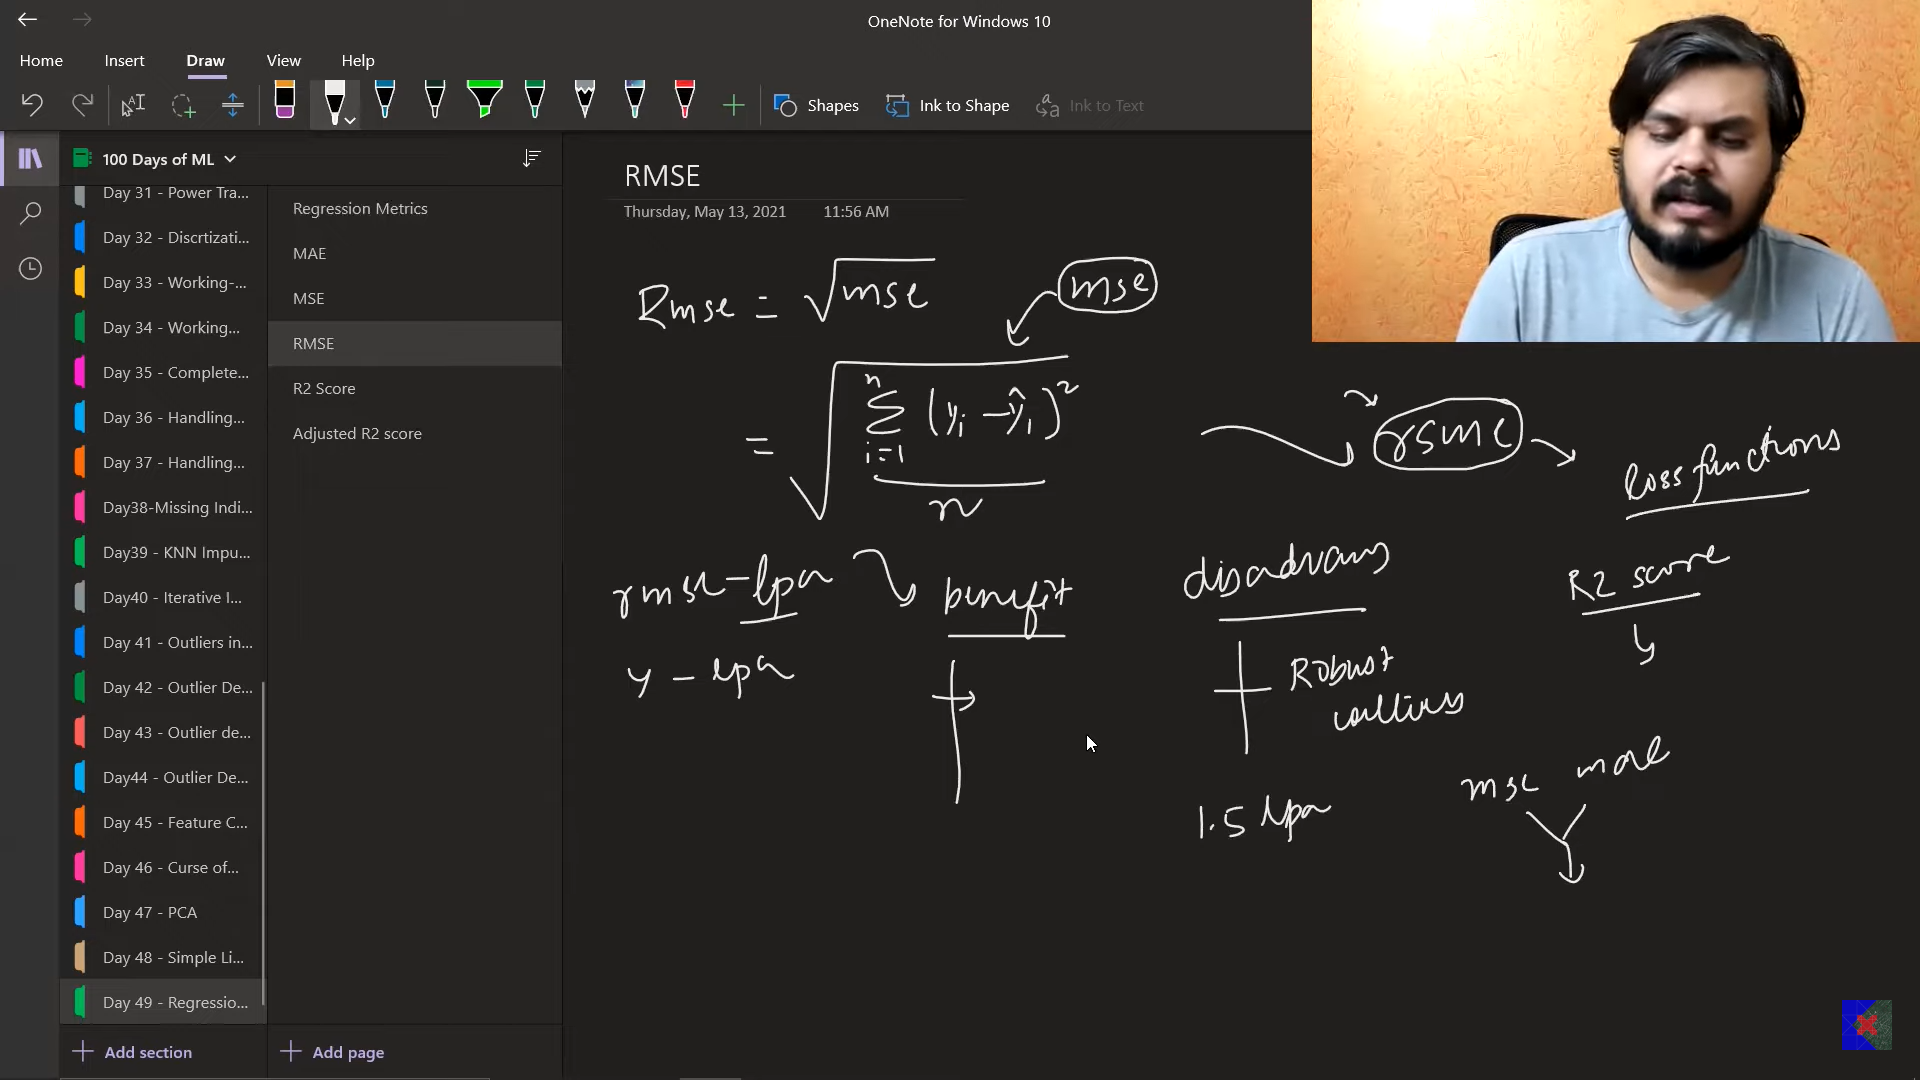 OneNote for Windows 10
Home Insert Draw View Help
Shapes Ink to Shape Ink to Text
100 Days of ML
Day 31 - Power Tra...
Day 32 - Discrtizati...
Day 33 - Working-...
Day 34 - Working...
Day 35 - Complete...
Day 36 - Handling...
Day 37 - Handling...
Day38-Missing Indi...
Day39 - KNN Impu...
Day40 - Iterative I...
Day 41 - Outliers in...
Day 42 - Outlier De...
Day 43 - Outlier de...
Day44 - Outlier De...
Day 45 - Feature C...
Day 46 - Curse of...
Day 47 - PCA
Day 48 - Simple Li...
Day 49 - Regressio...
Add section
Regression Metrics
MAE
MSE
RMSE
R2 Score
Adjusted R2 score
Add page
RMSE
Thursday, May 13, 2021 11:56 AM
Rmse = √mse
mse
= √ n Σ i=1 (yi - ŷi)² / n
rsme
loss functions
rmse - lpa
benefit
disadvans
R2 score
y - lpa
Robust
outliers
1.5 lpa
mse mae